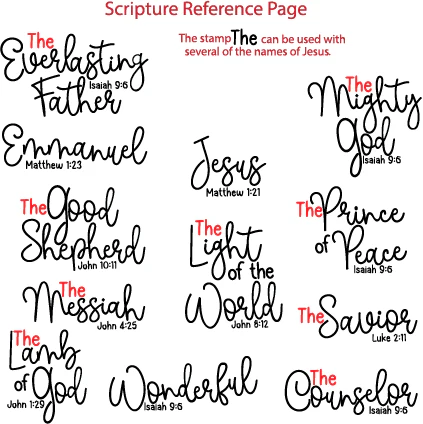 Scripture Reference Page
The stamp The can be used with
several of the names of Jesus.
The
Everlasting
Isaiah 9:6
Father
The
Mighty
God
Isaiah 9:6
Emmanuel
Matthew 1:23
Jesus
Matthew 1:21
The Good
Shepherd
John 10:11
The
Light
of the
World
John 8:12
The Prince
of Peace
Isaiah 9:6
The
Messiah
John 4:25
The Savior
Luke 2:11
The
Lamb
of God
John 1:29
Wonderful
Isaiah 9:6
The
Counselor
Isaiah 9:6